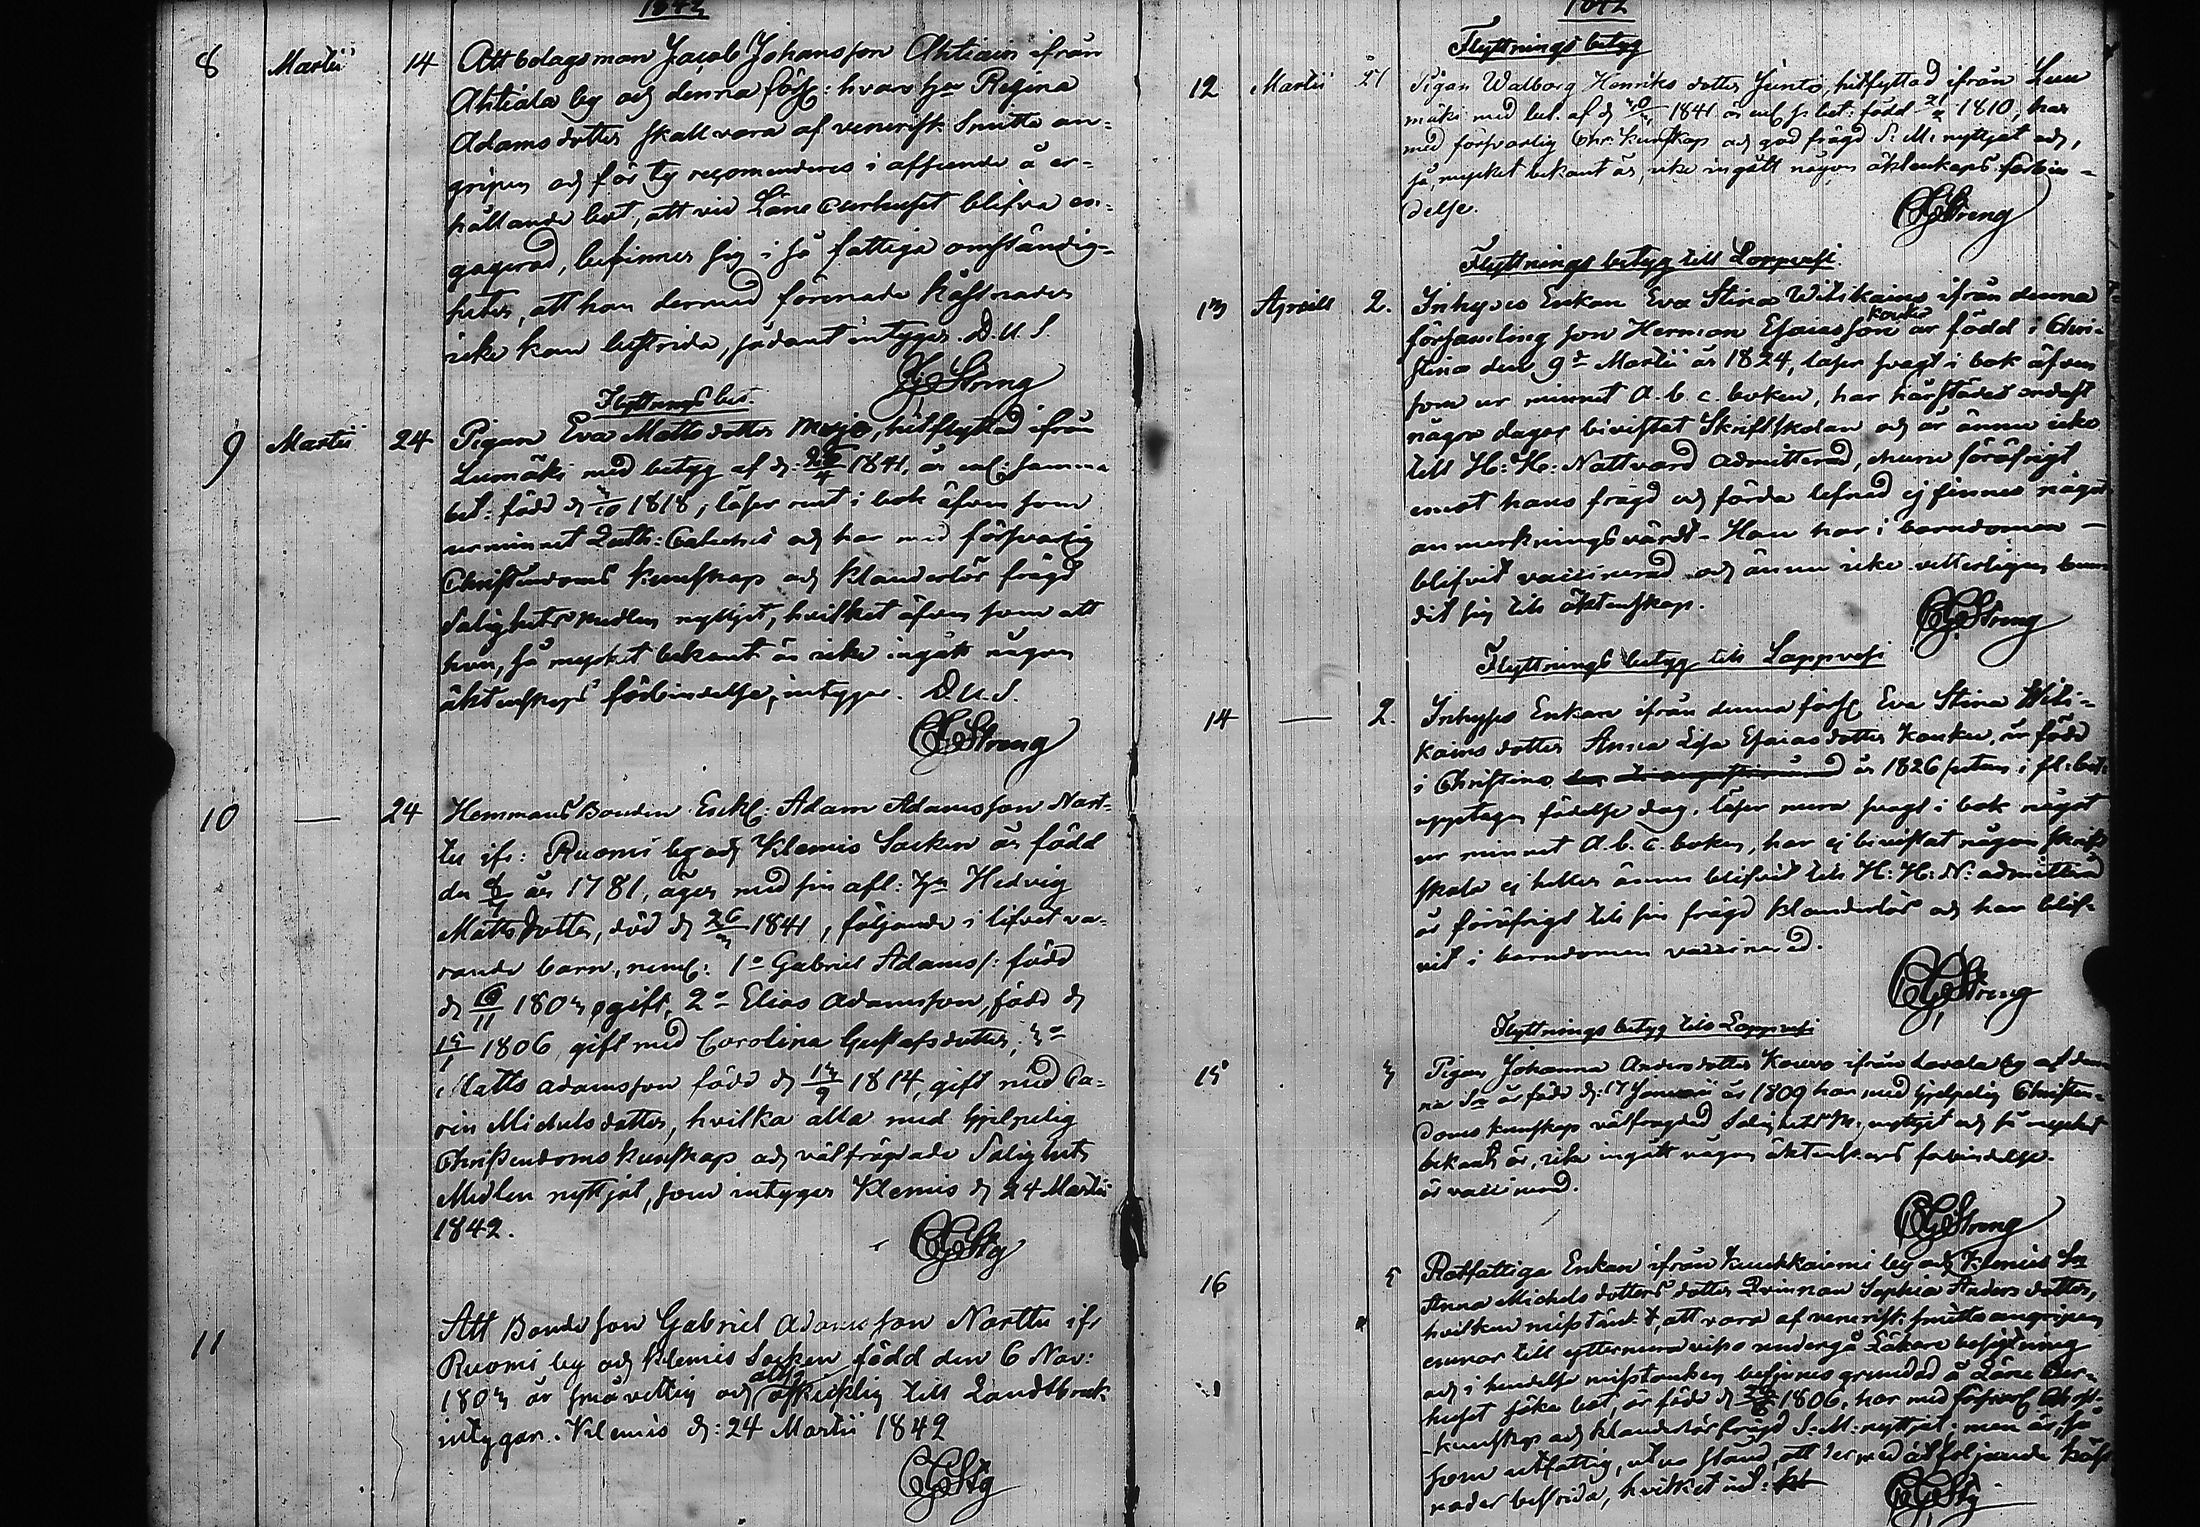 1842
8 Martii 14 Att bolagsman Jacob Johansson Ahtiain ifrån
Ahtiala by och denna förs: hvars h:u Regina
Adamsdotter skall vara af venerisk Smitta an-
gripen och för ty recomenderas i afseende å er-
hållande bot, att vid Läne Curhuset blifva en-
gagerad, befinner sig i så fattiga omständig-
heter, att han dermed förenade kåstnader
icke kan bestrida, sådant intygar. D.U.S.
CG Streng
Flyttnings bet.
9 Martii 24 Pigan Eva Mattsdotter Merjo, hitflyttad ifrån
Lumäki med betyg af d: 1841, är enl: samma
bet: född d 1818, läser rent i bok äfven som
ur minnet Luth: Cateches och har med försvarlig
Christendoms kunskap och klanderlös frägd
Salighets medlen nyttjat, hvilket äfven som att
hon, så mycket bekant är icke ingått någon
äktenskaps förbindelse, intygar. D.U.S.
CG Streng
10 — 24 Hemmans Bonden Adam Adamsson Nart-
tu ifr: Ruomi by och Klemis Socken är född
den år 1781, äger med sin afl: h:u Hedvig
Mattsdotter, död d 26/3 1841, följande i lifvet va-
rande barn, neml: 1o Gabriel Adamss: född
d 6/11 1803 ogift, 2o Elias Adamsson, född d
1806, gift med Carolina Gustafsdotter, 3o
Matts Adamsson född d 13/9 1814, gift med Ca-
rin Michelsdotter, hvilka alla med hjelpelig
Christendoms kunskap och välfrägdade Salighets
Medlen nyttjat, som intygar Klemis d 24 Martii
1842.
CG Stg
11 Att Bonde son Gabriel Adamsson Narttu ifr
Ruomi by och Klemis Socken född den 6 Nov:
1803 är småvettig och alls oskicklig till Landtbruk
intygar. Klemis d: 24 Martii 1842
CG Stg
1842
Flyttnings betyg
12 Martii 27 Pigan Walborg Henriksdotter Junto, hitflyttad ifrån Luu
mäki med bet. af d 1841 är enl s: bet: född 1810, har
med försvarlig Chr: kunskap och god frägd S: M: nyttjat och,
så mycket bekant är, icke ingått någon äktenskaps förbin-
delse.
CG Streng
Flyttnings betyg till Lappvesi
13 Aprill 2. Inhyses Enkan Eva Stina Wilikains ifrån denna
församling son Herman Esaiasson Kouku är född i Chri-
stina den 9de Martii år 1824, läser svagt i bok äfven
som ur minnet a. b. c. boken, har härstädes endast
några dagar bivistat Skriftskolan och är ännu icke
till H: H: Nattvard admitterad, churu föröfrigt
emot hans frägd och förda lefnad ej finnes något
anmerkningsvärdt - Han har i barndomen
blifvit vaccinerad och ännu icke vetterligen bun
dit sig till äktenskap.
CG Streng
Flyttnings betyg till Lappvesi
14 — 2. Inhyses Enkan ifrån denna förs Eva Stina Wili-
kains dotter Anna Lisa Esaiasdotter Kouku, är född
i Christina år 1826 utan i fl: bet:
upptagen födelse dag, läser svagt i bok något
ur minnet a. b. c. boken, har ej bivistat någon skrift
skola ej heller ännu blifvit till H: H: N: admitterad
är föröfrigt till sin frägd klanderlös och har blif-
vit i barndomen vaccinerad.
CG Streng
Flyttnings betyg till Lappvesi
15 3 Pigan Johanna Andersdotter Kouvo ifrån Lavola by af den
na Sn är född d: 17 Januarii år 1809 har med hjelpelig Christen-
doms kunskap välfrägdad Salighets M: nyttjat och så mycket
bekant är, icke ingått någon äktenskaps förbindelse.
är vaccinerad.
CG Streng
16 5 Rotfattiga Enkan ifrån by och Klemis Sn
Anna Michelsdotters dotter Qvinnan Sophia Andersdotter,
hvilken misstänkt, att vara af venerisk smitta angripen
ernar till undergå Läkare besigtning
och i händelse misstanken befinnes grundad å Läne Cur-
huset söka bot, är född d 1806, har med försvarl Christ:
kunskap och klanderlös frägd S: M: nyttjat; men är, så
som utfattig, utur stånd, att dermed åtföljande kåst
nader bestrida, hvilket
CG Stg